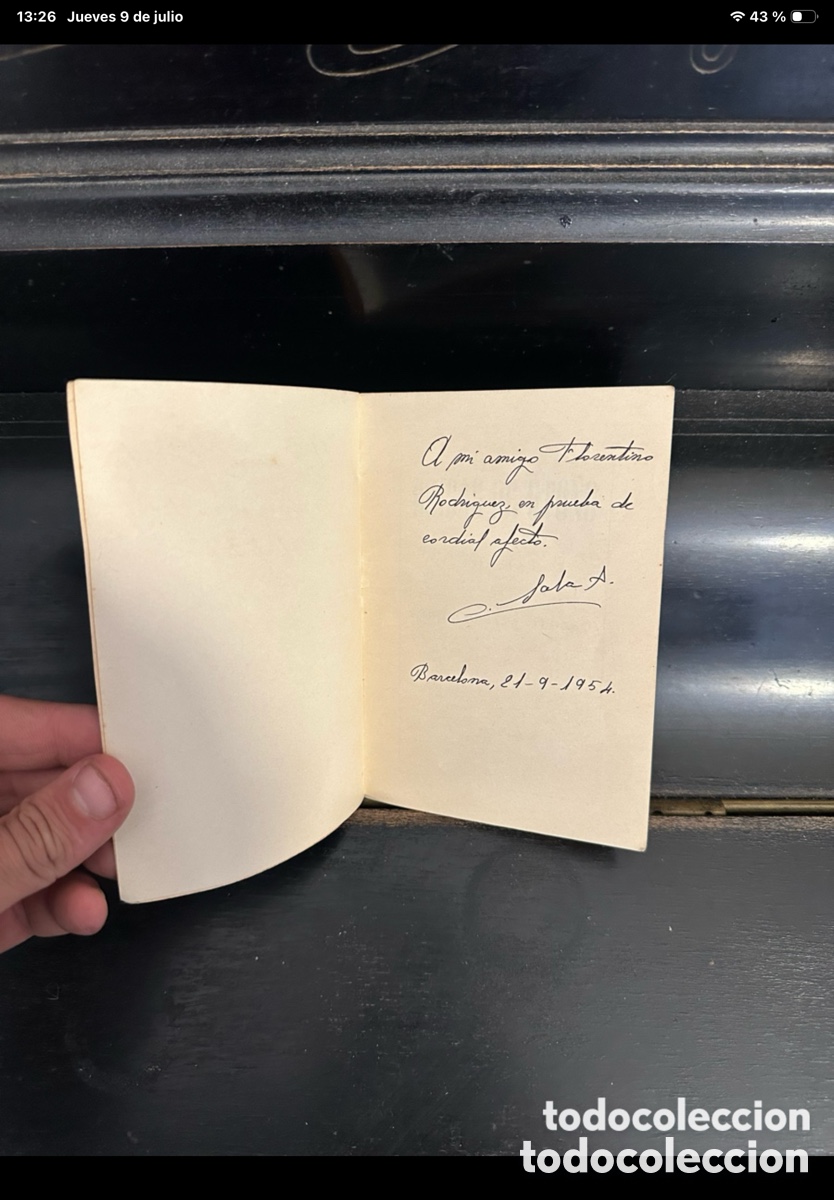 13:26 Jueves 9 de julio
43 %
A mi amigo Florentino
Rodriguez, en prueba de
cordial afecto.
Sala A.
Barcelona, 21-9-1954.
todocoleccion
todocoleccion